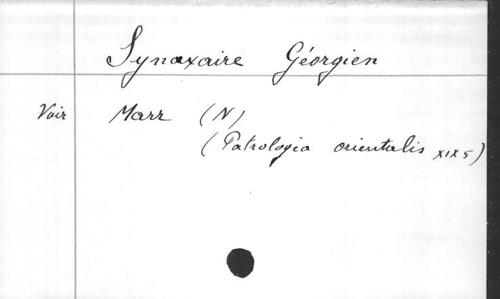 Synaxaire Géorgien
Voir Marr (N)
(Patrologia orientalis XIX 5)